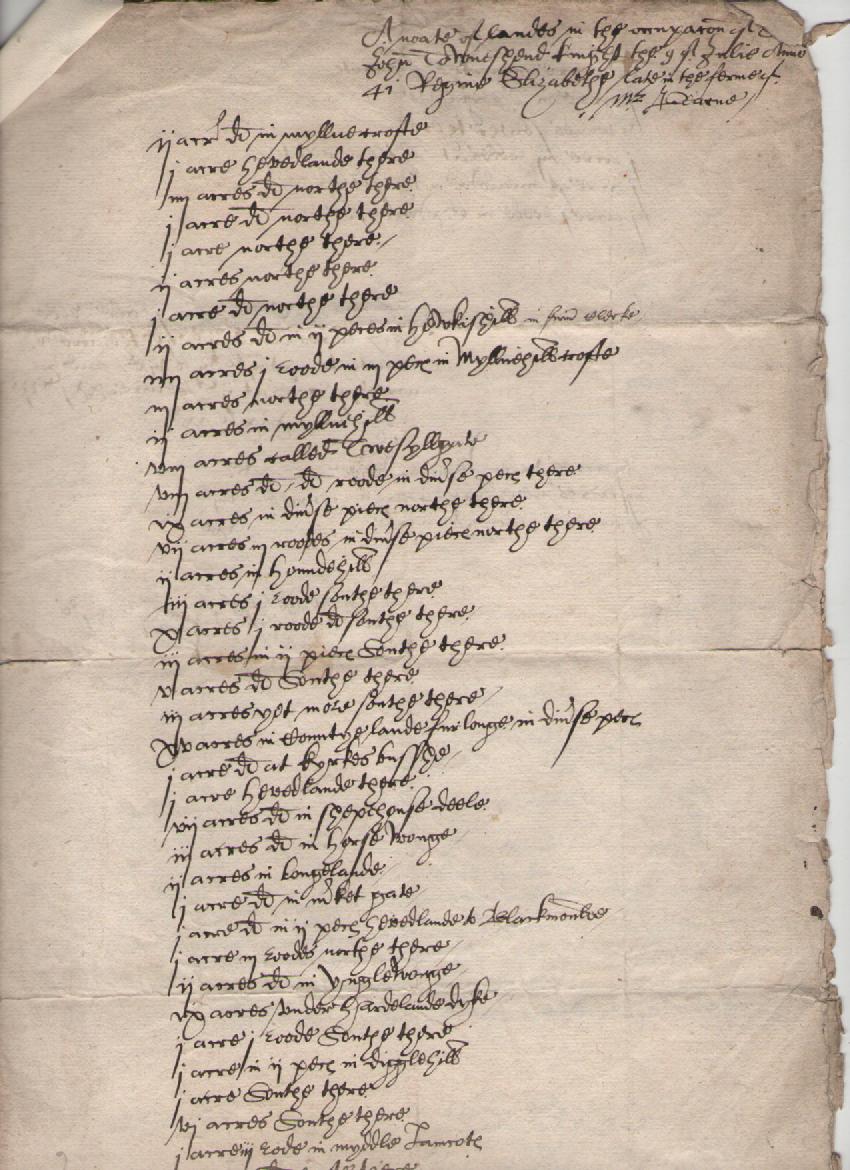 A noate of landes in the occupacon of S
John Townespend knight the 9 of Julie Anno
41 Regine Elizabethe late in the ferme of
Mr
ij acr dd in myllnecrofte
j acre hevedlande there
iiij acres dd northe there
j acre dd northe there
j acre northe there
ij acres northe there
j acre dd northe there
ij acres dd in ij peces in in
iiij acres j roode in iij pecs in Myllnehill crofte
iij acres northe there
ij acres in myllnehill
viij acres called Twesyllgate
viij acres dd dd roode in divse pecs there
ix acres in divse piecs northe there
vij acres iij roodes in divse piecs northe there
ij acres in houndehill
iiij acres j roode southe there
x acres j roode dd southe there
iij acres in ij piecs Southe there
v acres dd Southe there
iij acres yet more southe there
xv acres in lande furlonge in divse pecs
j acre dd at kyrkes busshe
j acre hevedlande there
vij acres dd in shepehouse deele
iij acres dd in horse wonge
ij acres in longelande
j acre dd in mket gate
j acre dd in ij pecs hevedlande to
j acre iij roodes northe there
ij acres dd in wonge
ix acres under hardelande dyke
j acre j roode Southe there
j acre in ij pecs in digglehill
j acre Southe there
vj acres Southe there
j acre iij rode in myddle